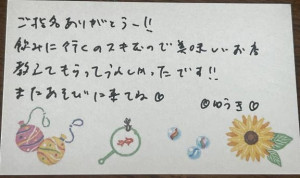 ご指名ありがとうー!!
飲みに行くのスキなので美味しいお店
教えてもらってうれしかったです!!
またあそびに来てね♡
@ゆうき♡